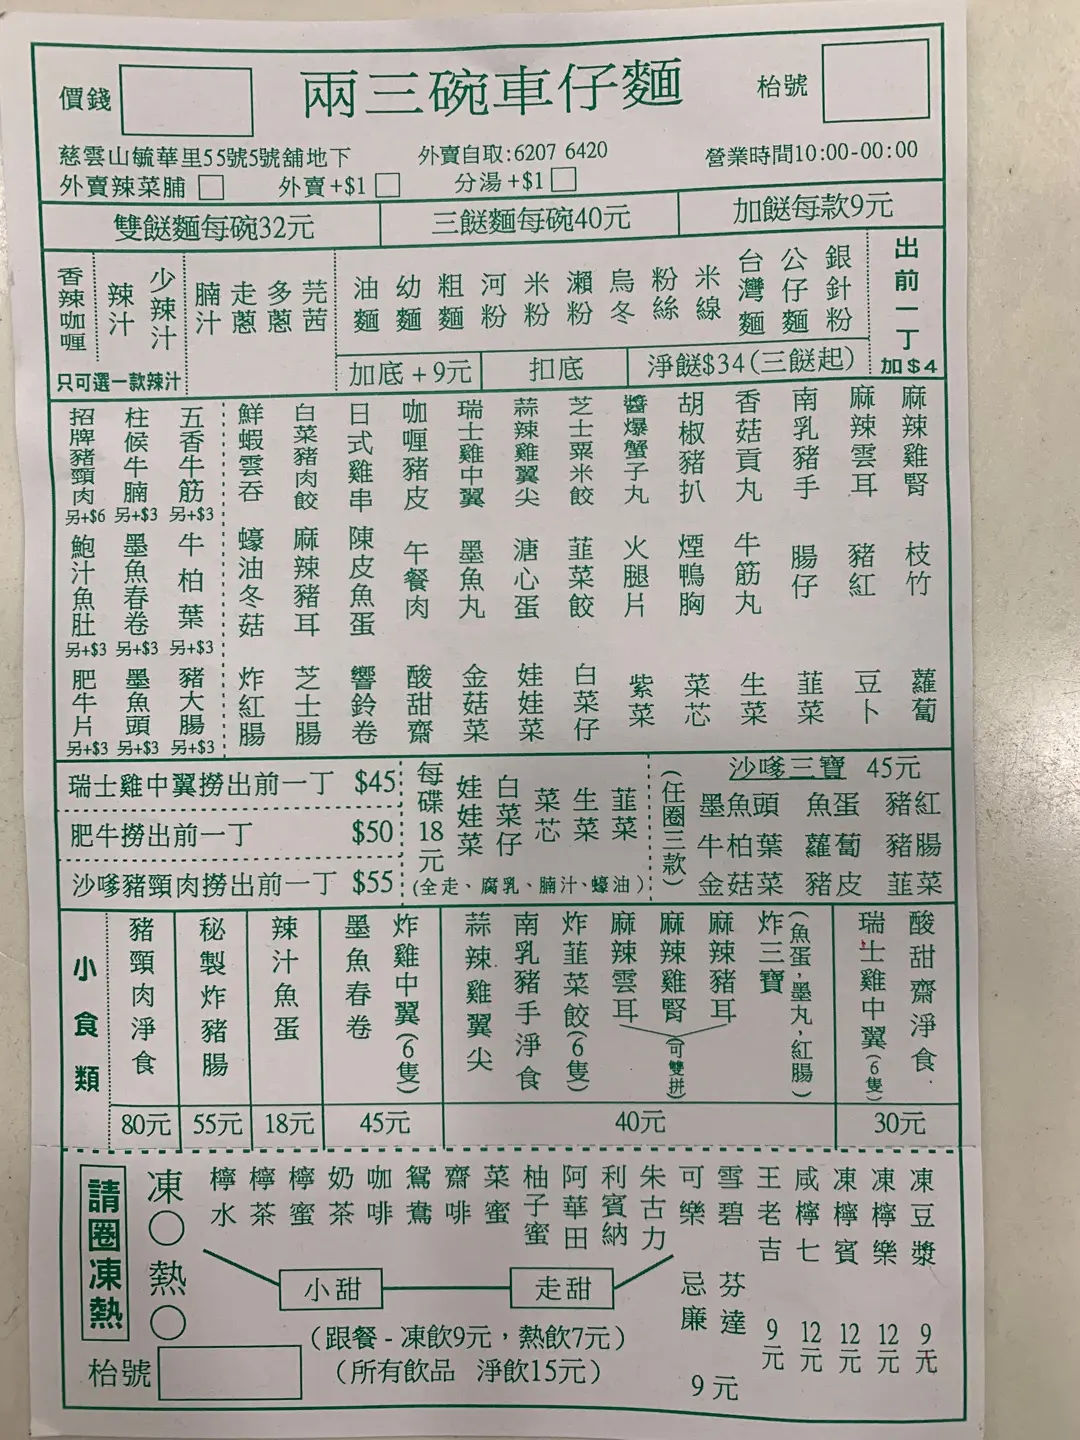 價錢
兩三碗車仔麵
枱號
慈雲山毓華里55號5號舖地下
外賣自取:6207 6420
營業時間10:00-00:00
外賣辣菜脯
外賣+$1
分湯+$1
雙餸麵每碗32元
三餸麵每碗40元
加餸每款9元
香辣咖喱
辣汁
少辣汁
只可選一款辣汁
腩汁
走蔥
多蔥
芫茜
油麵
幼麵
粗麵
河粉
米粉
瀨粉
烏冬
粉絲
米線
台灣麵
公仔麵
銀針粉
出前一丁
加$4
加底+9元
扣底
淨餸$34(三餸起)
招牌豬頸肉
另+$6
柱候牛腩
另+$3
五香牛筋
另+$3
鮮蝦雲吞
白菜豬肉餃
日式雞串
咖喱豬皮
瑞士雞中翼
蒜辣雞翼尖
芝士粟米餃
醬爆蟹子丸
胡椒豬扒
香菇貢丸
南乳豬手
麻辣雲耳
麻辣雞腎
鮑汁魚肚
另+$3
墨魚春卷
另+$3
牛柏葉
另+$3
蠔油冬菇
麻辣豬耳
陳皮魚蛋
午餐肉
墨魚丸
溏心蛋
韮菜餃
火腿片
煙鴨胸
牛筋丸
腸仔
豬紅
枝竹
肥牛片
另+$3
墨魚頭
另+$3
豬大腸
另+$3
炸紅腸
芝士腸
響鈴卷
酸甜齋
金菇菜
娃娃菜
白菜仔
紫菜
菜芯
生菜
韮菜
豆卜
蘿蔔
瑞士雞中翼撈出前一丁 $45
肥牛撈出前一丁 $50
沙嗲豬頸肉撈出前一丁 $55
每碟18元
娃娃菜
白菜仔
菜芯
生菜
韮菜
(全走、腐乳、腩汁、蠔油)
(任圈三款)
沙嗲三寶 45元
墨魚頭 魚蛋 豬紅
牛柏葉 蘿蔔 豬腸
金菇菜 豬皮 韮菜
小食類
豬頸肉淨食
80元
秘製炸豬腸
55元
辣汁魚蛋
18元
墨魚春卷
炸雞中翼(6隻)
45元
蒜辣雞翼尖
南乳豬手淨食
炸韮菜餃(6隻)
麻辣雲耳
麻辣雞腎
麻辣豬耳
(可雙拼)
炸三寶
(魚蛋,墨丸,紅腸)
40元
瑞士雞中翼(6隻)
酸甜齋淨食
30元
請圈凍熱
凍
熱
檸水
檸茶
檸蜜
奶茶
咖啡
鴛鴦
齋啡
菜蜜
柚子蜜
阿華田
利賓納
朱古力
小甜
走甜
(跟餐 - 凍飲9元，熱飲7元)
(所有飲品 淨飲15元)
可樂
雪碧
忌廉
芬達
9元
王老吉
9元
咸檸七
12元
凍檸賓
12元
凍檸樂
12元
凍豆漿
9元
枱號